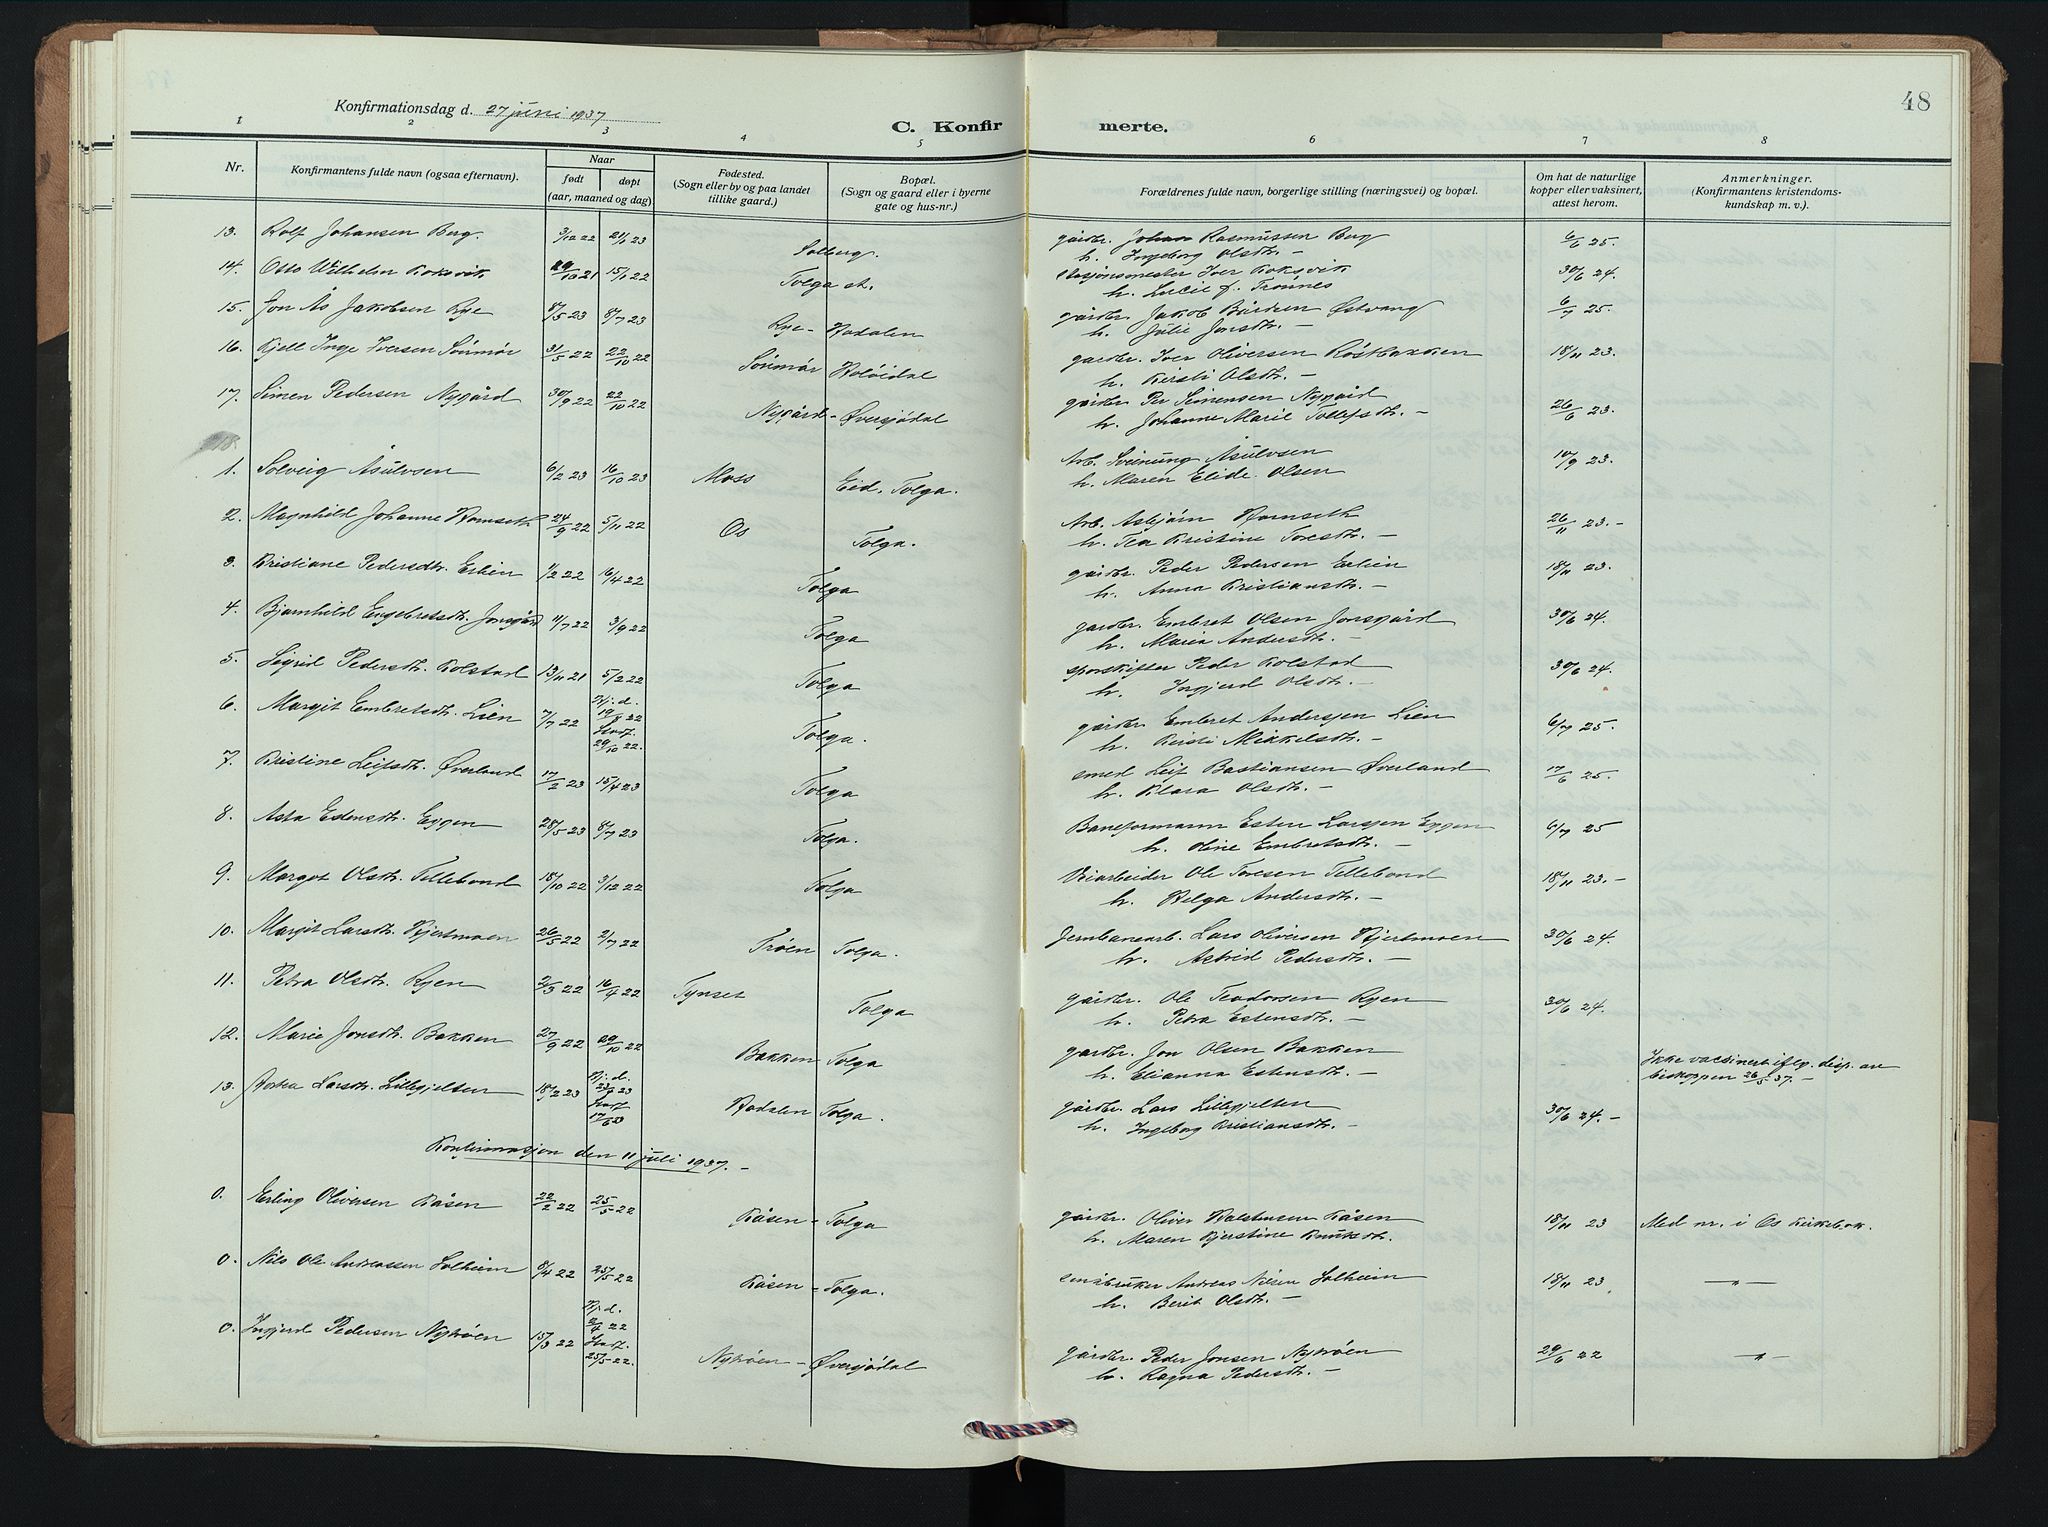 48
Konfirmationsdag d. 27 juni 1937
C. Konfirmerte.
1 2 3 4 5 6 7 8
Nr. Konfirmantens fulde navn (ogsaa efternavn). Naar født døpt (aar, maaned og dag) Fødested. (Sogn eller by og paa landet tillike gaard.) Bopæl. (Sogn og gaard eller i byerne gate og hus-nr.) Forældrenes fulde navn, borgerlige stilling (næringsvei) og bopæl. Om hat de naturlige kopper eller vaksinert, attest herom. Anmerkninger. (Konfirmantens kristendomskundskap m. v.).
13. Rolf Johansen Berg. 3/12 22 21/1 23 Solberg. gårdbr. Johan Rasmussen Berg 6/6 25.
h. Ingeborg Olsdtr. —
14. Otto Wilhelm Koksvik 29/10 21 15/1 22 Tolga st. stasjonsmester Iver Koksvik 30/6 24.
h. Lucie f. Trønnes
15. Jon Ås Jakobsen Rye 8/5 23 8/7 23 Rye - Hodalen gårdbr. Jakob Bårdsen Østvang 6/7 25.
h. Julie Jonsdtr. —
16. Kjell Inge Iversen Sönmör 31/5 22 22/10 22 Sönmör Holöidal gardbr. Iver Oliversen Röstbakken 18/11 23.
h. Kirsti Olsdtr. —
17. Simen Pedersen Nygård 30/9 22 22/10 22 Nygård - Øversjödal gårdbr. Per Simensen Nygård 26/6 23.
h. Johanne Marie Tollefsdtr. —
18.
1. Solveig Åsulvsen 6/2 23 16/10 23 Moss Eid. Tolga. Arb. Sveinung Åsulvsen 10/9 23.
h. Maren Elide Olsen
2. Magnhild Johanne Romseth 24/9 22 5/11 22 Os Tolga. Arb. Asbjörn Romseth 26/11 23. -
h. Tea Kristine Toresdtr. —
3. Kristiane Pedersdtr. Erlien 1/2 22 16/4 22 Tolga gårdbr. Peder Pedersen Erlien 18/11 23.
h. Anna Kristiansdtr. —
4. Bjarnhild Engebretsdtr. Jonsgård 11/7 22 3/9 22 Tolga gardbr. Embret Olsen Jonsgård 30/6 24.
h. Maria Andersdtr. —
5. Sigrid Pedersdtr. Kolstad 13/11 21 5/2 22 Tolga sporskifter Peder Kolstad 30/6 24.
h. Ingjerd Olsdtr. —
6. Margit Embretsdtr. Lien 7/7 22 Hj. d. 19/7 22 Stadf. 29/10 22. Tolga. gårdbr. Embret Andersen Lien 6/7 25.
h. Kirsti Mikkelsdtr. —
7. Kristine Leifsdtr. Øverland 17/2 23 15/4 23 Tolga smed Leif Bastiansen Øverland 17/6 25.
h. Klara Olsdtr. —
8. Asta Estensdtr. Eggen 28/5 23 8/7 23 Tolga. Baneformann Esten Larssen Eggen 6/7 25
h. Oline Embretsdtr. —
9. Margot Olsdtr. Tillebond 18/10 22 3/12 22 Tolga Veiarbeider Ole Toresen Tillebond 18/11 23. -
h. Helga Andersdtr. —
10. Margit Larsdtr. Hjertmoen 26/5 22 2/7 22 Tröen Tolga. Jernbanearb. Lars Oliversen Hjertmoen 30/6 24.
h. Astrid Pedersdtr. —
11. Petra Olsdtr. Ryen 2/3 22 16/4 22 Tynset Tolga gårdbr. Ole Teodorsen Ryen 30/6 24.
h. Petra Estensdtr. —
12. Marie Jonsdtr. Bakken 27/9 22 29/10 22 Bakken Tolga gardbr. Jon Olsen Bakken Ikke vacsinert iflg. disp. av
h. Elianna Estensdtr. — biskoppen 26/5 37. —
13. Jostea Larsdtr. Lillegjelten 18/2 23 Hj. d. 23/2 23 Stadf. 17/6 23 Hodalen Tolga. gårdbr. Lars Lillegjelten 30/6 24. -
h. Ingeborg Kristiansdtr. —
Konfirmasjon den 11 juli 1937. —
0. Erling Oliversen Kåsen 22/2 22 25/5 22 Kåsen - Tolga gårdbr. Oliver Halstensen Kåsen 18/11 23 Med nr. i Os Kirkebok.
h. Maren Kjerstine Knutsdtr.
0. Nils Ole Andreassen Solheim 8/4 22 25/5 22 Kåsen - Tolga. småbruker Andreas Nilsen Solheim 18/11 23 — " —
h. Berit Olsdtr. —
0. Ingjerd Pedersen Nytröen 15/3 22 Hj. d. 2/4 22 Stadf. 25/5 22. Nytröen - Øversjödal gårdbr. Peder Jonsen Nytröen 29/6 22 — " —
h. Ragna Pedersdtr. —